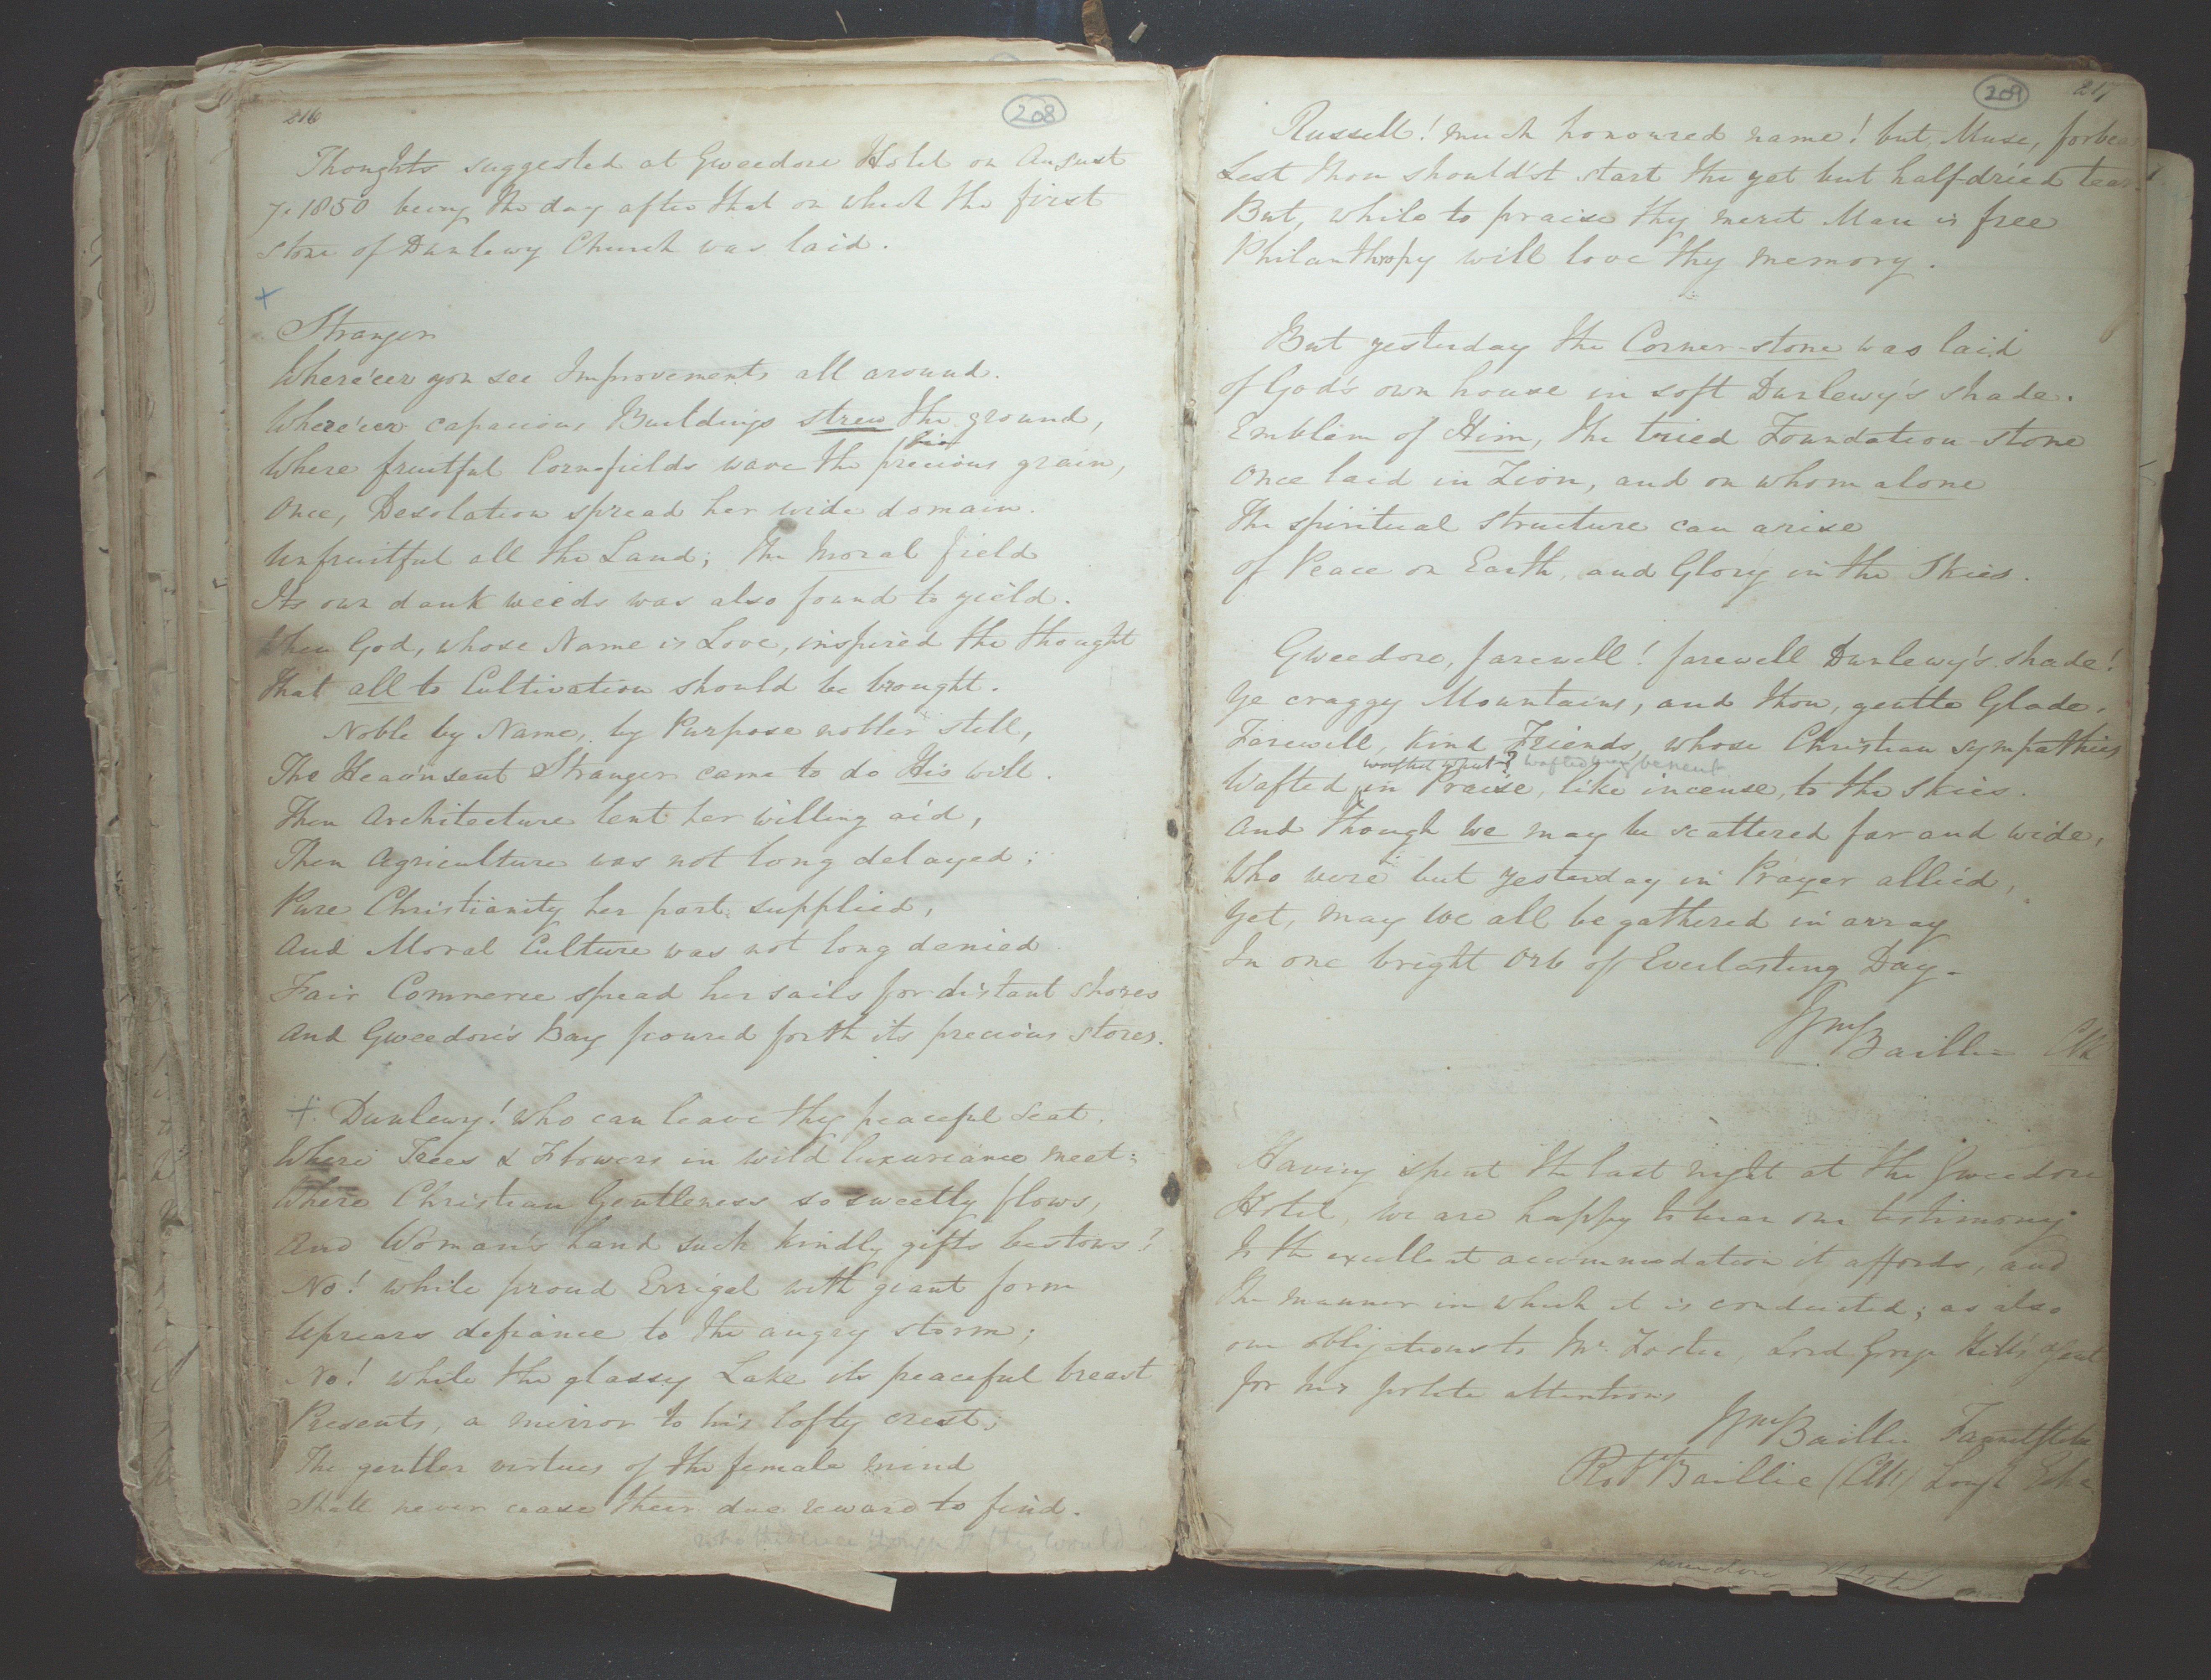 216
208
Thoughts suggested at Gweedore Hotel on August
7. 1850 being the day after that on which the first
stone of Dunlewy Church was laid.
+
Stranger
Where'eer you see Improvements all around.
Where'eer capacious Buildings strew the ground,
Where fruitful Cornfields wave the precious grain,
Once, Desolation spread her wide domain.
Unfruitful all the Land; the Moral field
Its own dank weeds was also found to yield.
When God, whose Name is Love, inspired the thought
That all to Cultivation should be brought.
Noble by Name, by Purpose nobler still,
The Heav'nsent Stranger came to do His will.
Then Architecture lent her willing aid,
Then Agriculture was not long delayed;
Pure Christianity her part supplied,
And Moral Culture was not long denied
Fair Commerce spread her sails for distant shores
And Gweedore's Bay poured forth its precious stores.
+. Dunlewy! who can leave thy peaceful Seat.
Where Trees & Flowers in wild luxuriance meet:
Where Christian Gentleness so sweetly flows,
And Woman's hand such kindly gifts bestows?
No! while proud Errigal with giant form
Uprears defiance to the angry storm;
No! while the glassy Lake its peaceful breast
Presents, a mirror to his lofty crest;
The gentler virtues of the female mind
Shall never cease their due reward to find.
209
217
Russell! much honoured name! but, Muse, forbear
Lest thou should'st start the yet but half-dried tear
But, while to praise thy merit Man is free
Philanthropy will love thy memory.
But yesterday the Corner-stone was laid
of God's own house in soft Dunlewy's shade.
Emblem of Him, the tried Foundation-stone
Once laid in Zion, and on whom alone
The spiritual structure can arise
of Peace on Earth, and Glory in the Skies.
Gweedore, farewell! farewell Dunlewy's shade!
Ye craggy Mountains, and thou, gentle Glade,
Farewell, kind Friends, whose Christian sympathies
wafted what?
Wafted in Praise, like incense, to the skies.
And though we may be scattered far and wide,
Who were but yesterday in Prayer allied,
Yet, may we all be gathered in array
In one bright Orb of Everlasting Day.
Wm Baillie Clk
Having spent the last night at the Gweedore
Hotel, we are happy to bear our testimony
to the excellent accommodation it affords, and
the manner in which it is conducted; as also
our obligations to Mr. Foster, Lord George Hill's Agent
for his polite attentions
Wm Baillie
Robt Baillie (Clk) Lough Eske